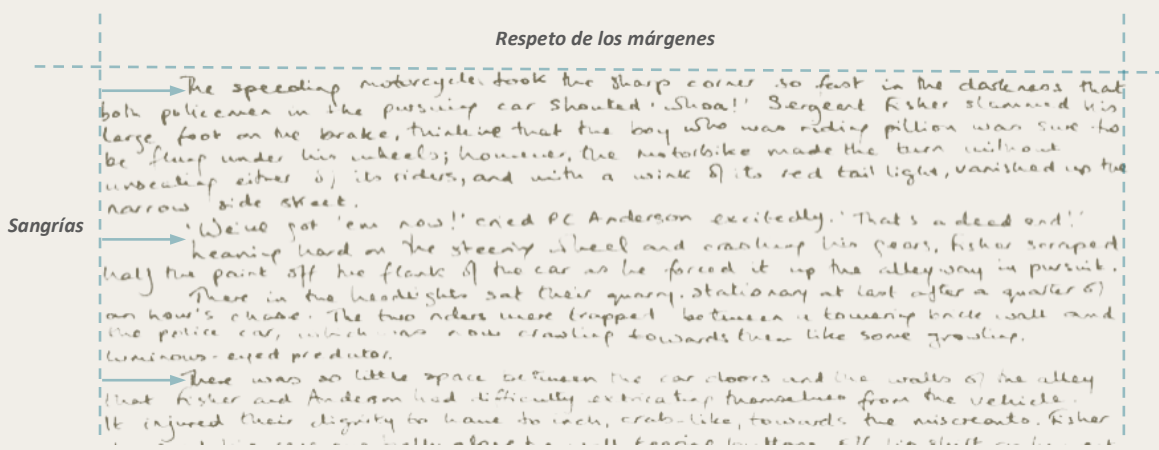 Respeto de los márgenes
The speeding motorcycle took the sharp corner so fast in the darkness that
both policemen in the pursuing car shouted 'Whoa!' Sergeant Fisher slammed his
large foot on the brake, thinking that the boy who was riding pillion was sure to
be flung under his wheels; however, the motorbike made the turn without
unseating either of its riders, and with a wink of its red tail light, vanished up the
narrow side street.
Sangrías
'We've got 'em now!' cried PC Anderson excitedly. 'That's a dead end!'
Leaning hard on the steering wheel and crashing his gears, Fisher scraped
half the paint off the flank of the car as he forced it up the alleyway in pursuit.
There in the headlights sat their quarry, stationary at last after a quarter of
an hour's chase. The two riders were trapped between a towering brick wall and
the police car, which was now crawling towards them like some growling,
luminous-eyed predator.
There was so little space between the car doors and the walls of the alley
that Fisher and Anderson had difficulty extricating themselves from the vehicle.
It injured their dignity to have to inch, crab-like, towards the miscreants. Fisher